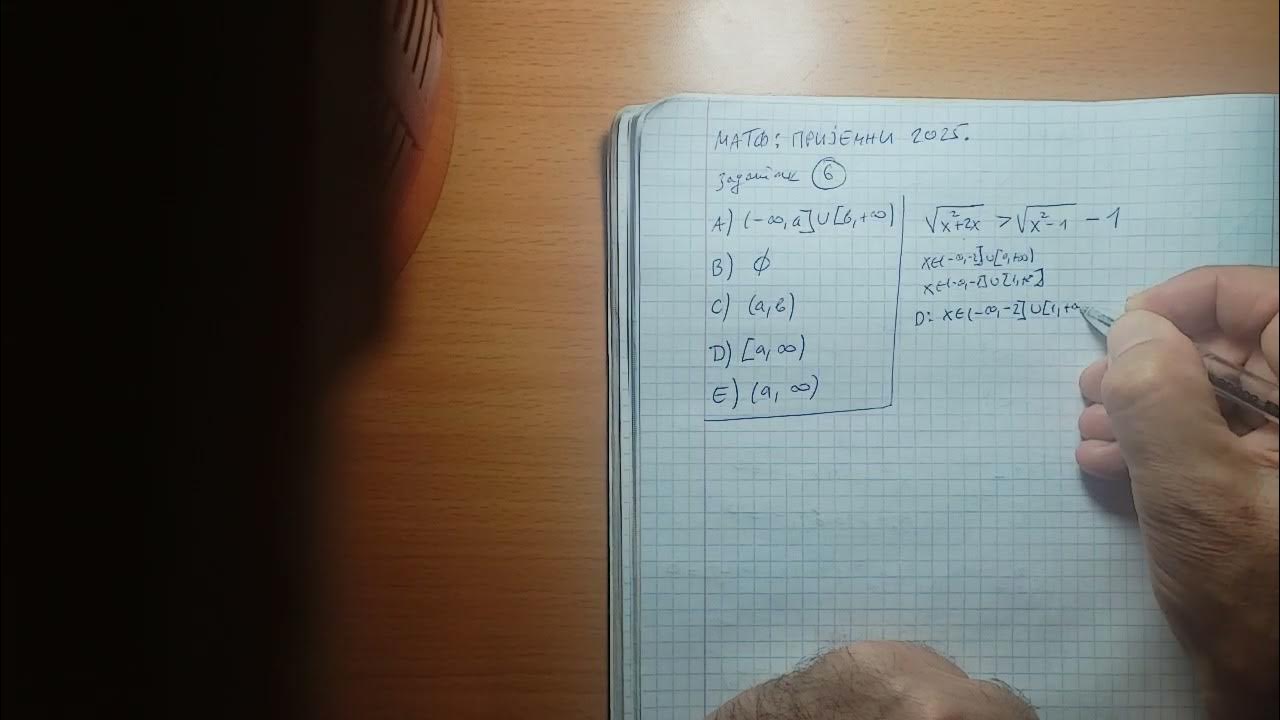 МАТФ: ПРИЈЕМНИ 2025.
Задатак 6
A) (-∞, a] ∪ [b, +∞)
B) ∅
C) (a, b)
D) [a, ∞)
E) (a, ∞)
√x²+2x > √x²-1 - 1
x∈(-∞,-2]∪[0,+∞)
x∈(-∞,-1]∪[1,+∞]
D: x∈(-∞,-2]∪[1,+∞